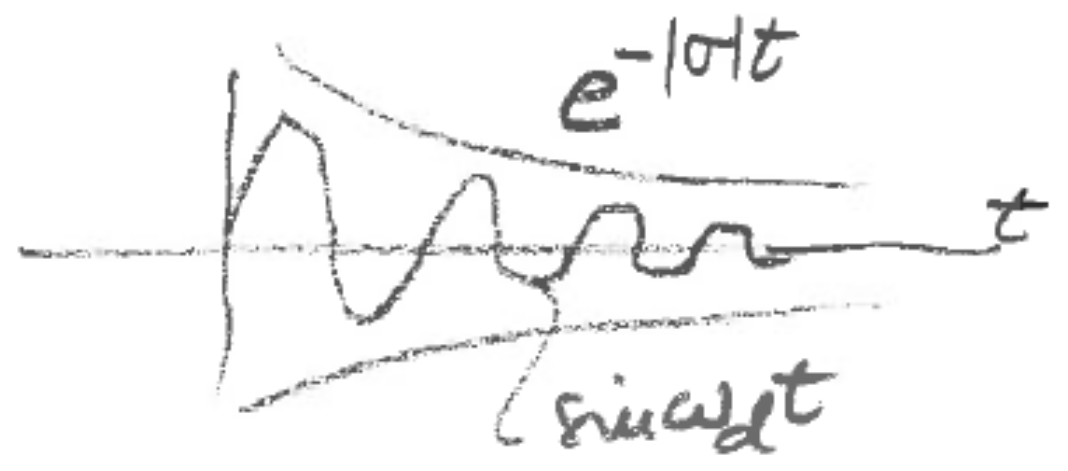 e^{-|σ|t}
t
sin ω_d t